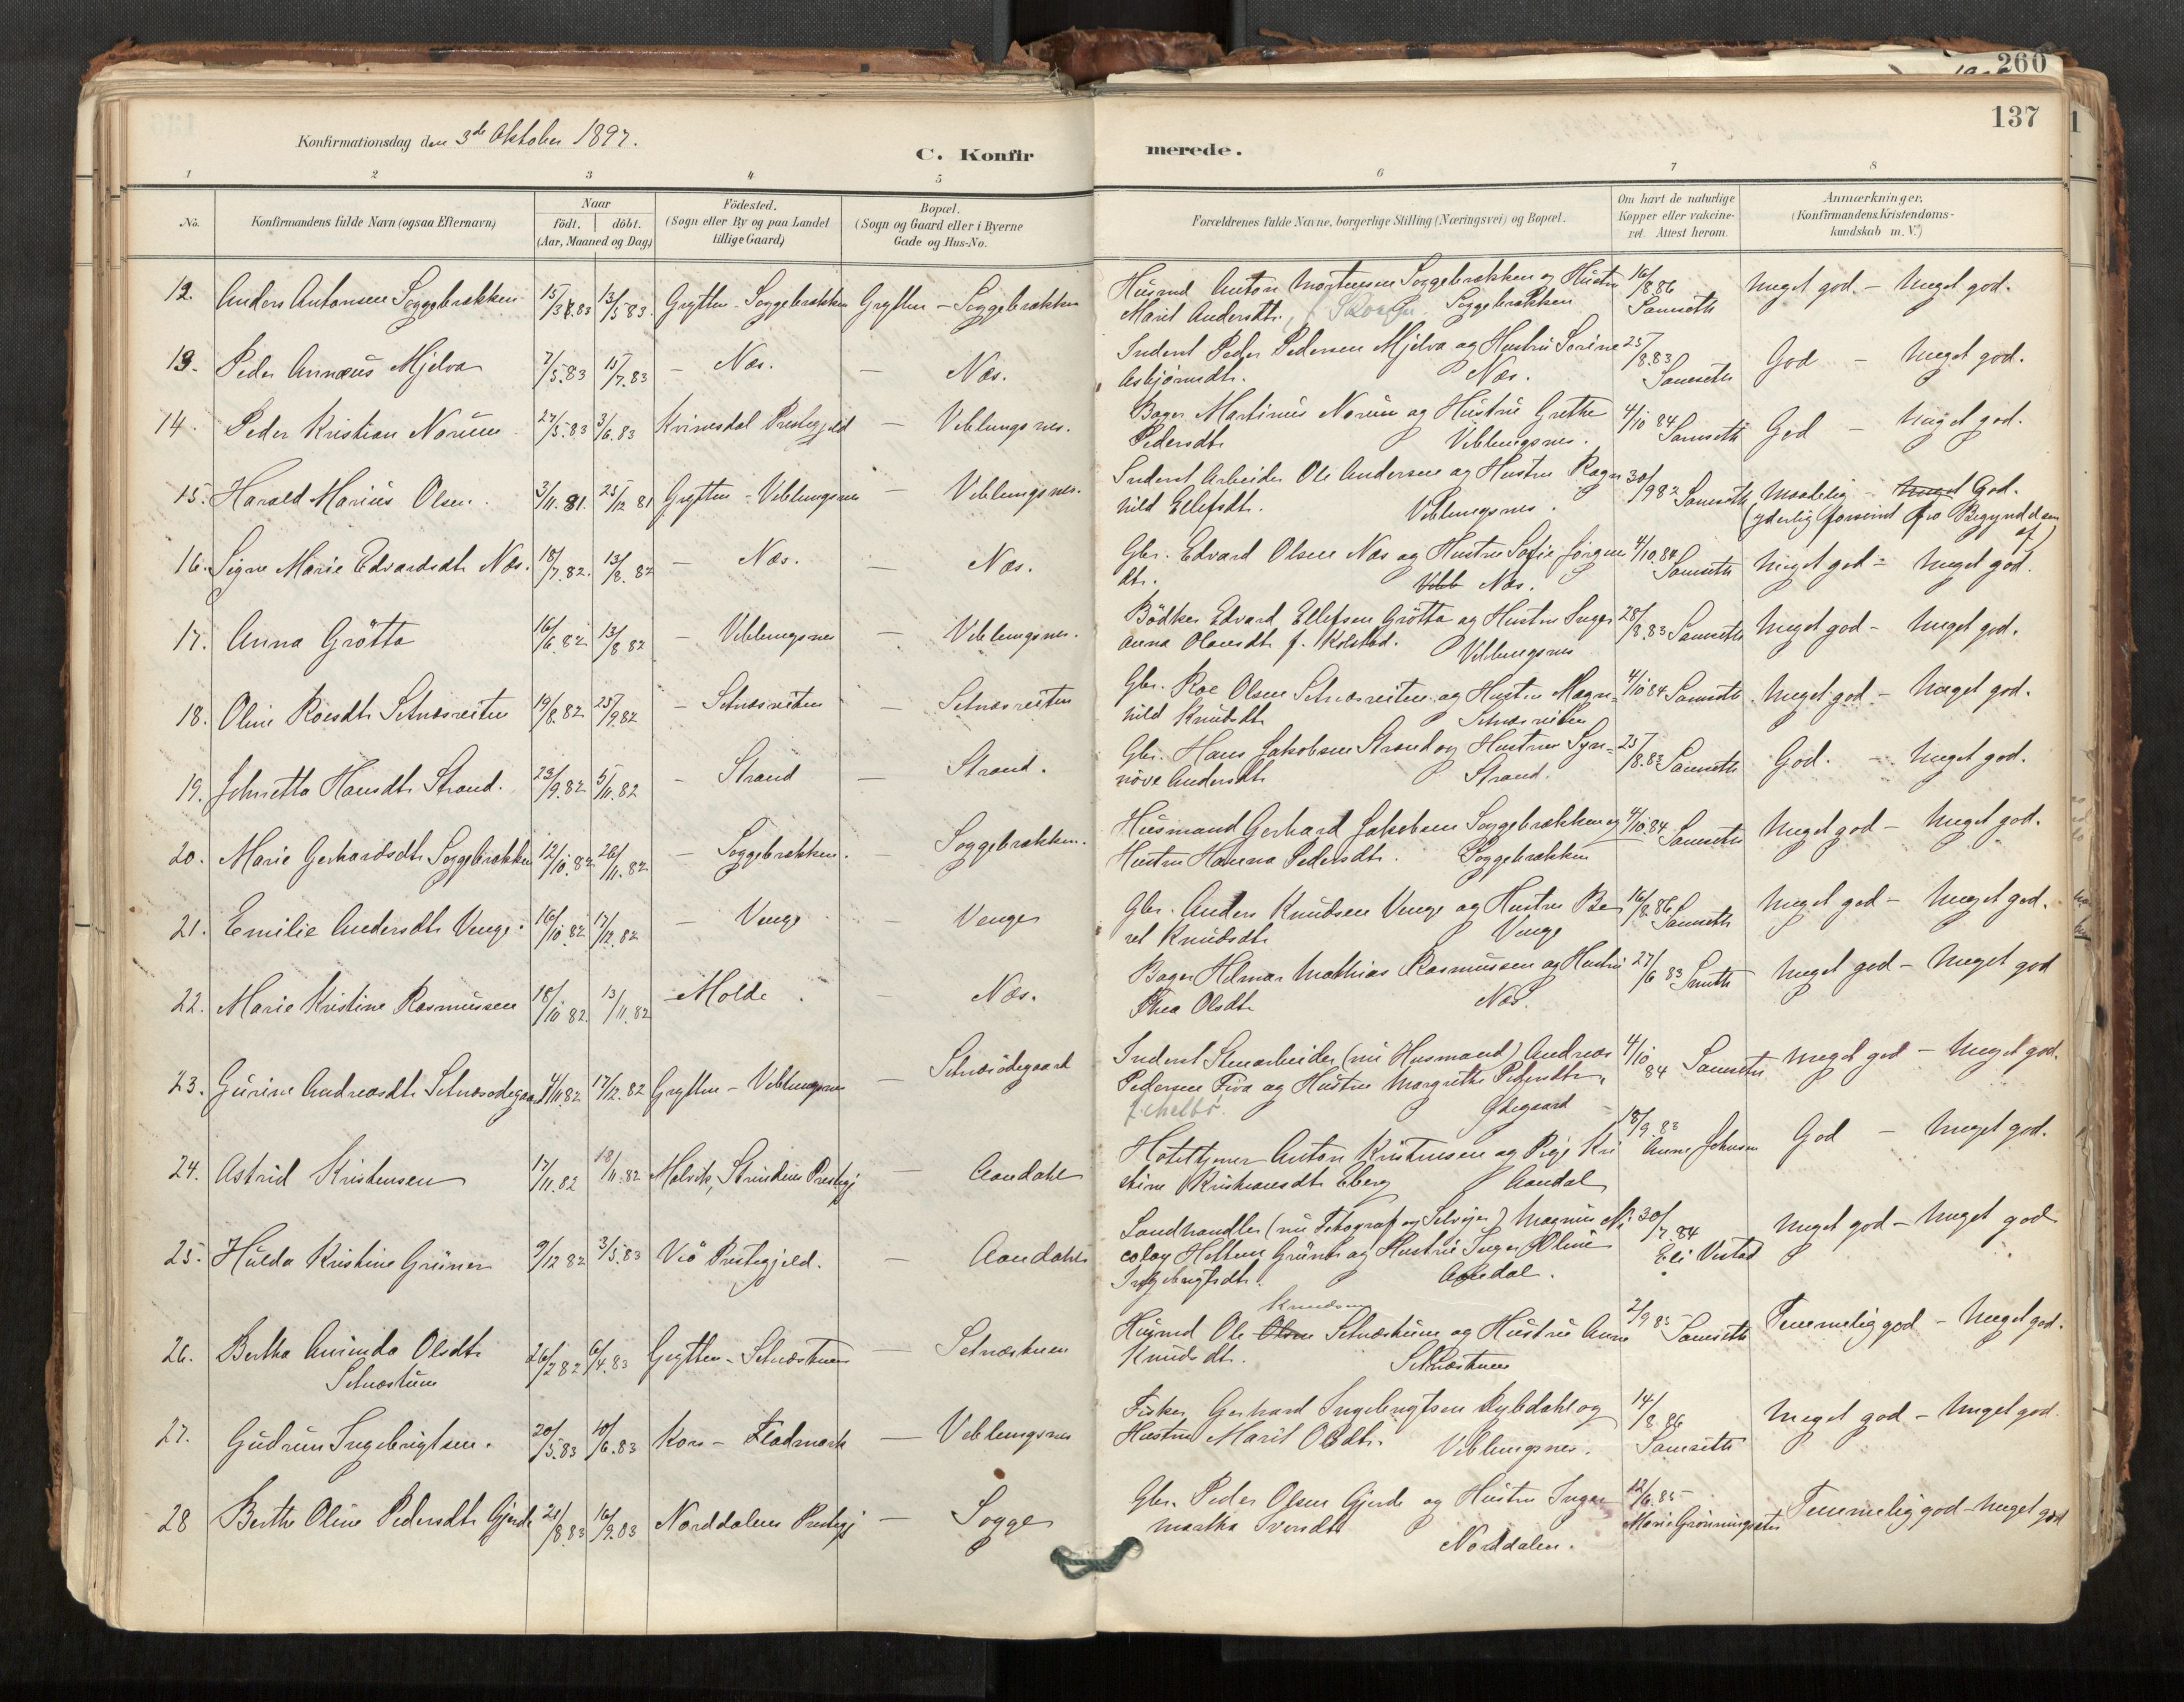 260
137
Konfirmationsdag den 3de Oktober 1897.
C. Konfirmerede.
1 2 3 4 5 6 7 8
No.
Konfirmandens fulde Navn (ogsaa Efternavn)
Naar
født. | döbt.
(Aar, Maaned og Dag)
Födested.
(Sogn eller By og paa Landet
tillige Gaard)
Bopæl.
(Sogn og Gaard eller i Byerne
Gade og Hus-No.
Forældrenes fulde Navne, borgerlige Stilling (Næringsvei) og Bopæl.
Om havt de naturlige
Kopper eller vakcine-
ret. Attest herom.
Anmærkninger.
(Konfirmandens Kristendoms-
kundskab m. V.)
12. Anders Antonsen Soggebrækken 15/3.83 13/5 83. Grytten - Soggebrækken Grytten - Soggebrækken Husmd Anton Mortensen Soggebrækken og Hustru 16/8 86 Meget god. - Meget god.
Marit Andersdtr., Soggebrækken Samseth
13. Peder Annæus Mjelva 7/5.83 15/7.83 - Næs. - Næs. Inderst Peder Pedersen Mjelva og Hustru Serine 25/8.83 God - Meget god.
Asbjørnsdtr. Næs. Samseth
14. Peder Kristian Norum 27/5.83 3/6.83 Kvinesdal Prestegjeld - Veblungsnes. Bager Martinus Norum og Hustru Grethe 4/10 84 God - Meget god.
Pedersdtr. Veblungsnes. Samseth
15. Harald Marius Olsen. 3/11.81. 25/12 81 Grytten - Veblungsnes - Veblungsnes. Inderst Arbeider Ole Andersen og Hustru Ragn 30/9 82 Samseth Maadelig - Meget God.
hild Ellefsdtr. Veblungsnes. (yderlig forsømt fra Begyndelsen
af)
16. Signe Marie Edvardsdtr. Næs. 18/7.82. 13/8.82 - Næs. - Næs. Gbr. Edvard Olsen Næs og Hustru Sofie Jørgens 4/10.84 Meget god - Meget god.
dtr. Vebl Næs. Samseth
17. Anna Grötta 16/6.82 13/8 82 - Veblungsnes - Veblungsnes. Bödker Edvard Ellefsen Grötta og Hustru Inger 28/8.83 Samseth Meget god - Meget god.
anna Olausdtr. f. Kolstad. Veblungsnes
18. Oline Roesdtr. Setnæsreiten 19/8.82 25/9.82 - Setnæsreiten - Setnæsreiten Gbr. Roe Olsen Setnæsreiten og Hustru Magn- 4/10 84 Samseth Meget god - Meget god.
hild Knudsdtr. Setnæsreiten
19. Johnetta Hansdtr. Strand. 23/9.82 5/11.82 - Strand - Strand. Gbr. Hans Jakobsen Strand og Hustru Syn- 25/8.83 Samseth God. - Meget god.
növe Andersdtr. Strand.
20. Marie Gerhardsdtr. Soggebrækken 12/10.82 26/11.82 - Soggebrækken. Soggebrækken. Husmand Gerhard Jakobsen Soggebrækken og 4/10.84 Meget god - Meget god.
Hustru Hanna Pedersdtr. Soggebrækken Samseth
21. Emilie Andersdtr. Venge. 16/10.82 17/12.82 - Venge Venge Gbr. Anders Knudsen Venge og Hustru Be 16/8.86 Meget god - Meget god.
ret Knudsdtr. Venge Samseth
22. Marie Kristine Rasmussen 18/10 82. 13/11.82 - Molde. - Næs. Bager Hilmar Mathias Rasmussen og Hustru 27/6 83 Meget god - Meget god
Thea Olsdtr. Næs.
23. Gurine Andreasdtr. Setnæsodegaard 4/11.82 17/12.82 Grytten - Veblungsnes - Setnæsödegaard Inderst Stenarbeider (nu Husmand) Andreas 4/10 84 Samseth Meget god - Meget god.
Pedersen Fiva og Hustru Margrethe Pedersdtr.
Ödegaard
24. Astrid Kristensen 17/11.82 Malvik, Strindens Prestegj - Aandahl Hoteltjener Anton Kristensen og Pige Kri 18/9.83 God - Meget god.
stine Kristiansdtr. Eberg Aandal Anne Johnsen
25. Hulda Kristine Grüner 9/12 82 3/5.83 Viö Prestegjeld. - Aandahl Landhandler (nu Fotograf og Selveier) Magnus Ni 30/7.84 Meget god - Meget god
colay Holtene Grüner og Hustru Inger Oline Eli Vestad
Ingebrigtsdtr. Aandal.
26. Bertha Avinda Olsdtr. 26/2 82 6/4.83 Grytten - Setnæstuen - Setnæstuen Husmd Ole Olsen Knudsen Setnæstuen og Hustru Anne 2/9 85 Samseth Temmelig god - Meget god.
Setnæstuen Knudsdtr. Setnæstuen
27. Gudrun Ingebrigtsen. 20/5.83 10/6.83 Kors - Fladmark - Veblungsnes Fisker Gerhard Ingebrigtsen Dybdahl og 14/8.86 Meget god - Meget god.
Hustru Marit Olsdtr. Veblungsnes. Samseth
28 Berthe Oline Pedersdtr. Gjerde 21/8.83 16/9.83 Norddalens Prestegj - Sogge Gbr. Peder Olsen Gjerde og Hustru Inger 12/6.85 Temmelig god - Meget god
martha Iversdtr. Norddalen. Marie Grönningsæter